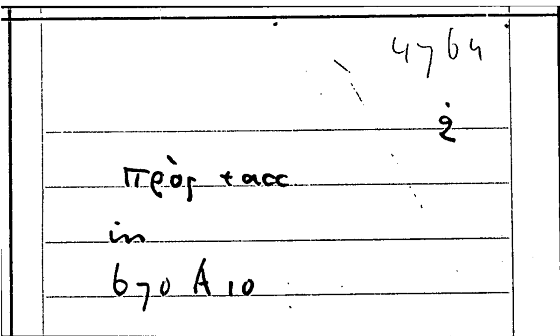 4764
2
πρὸς + acc
in
670 A 10